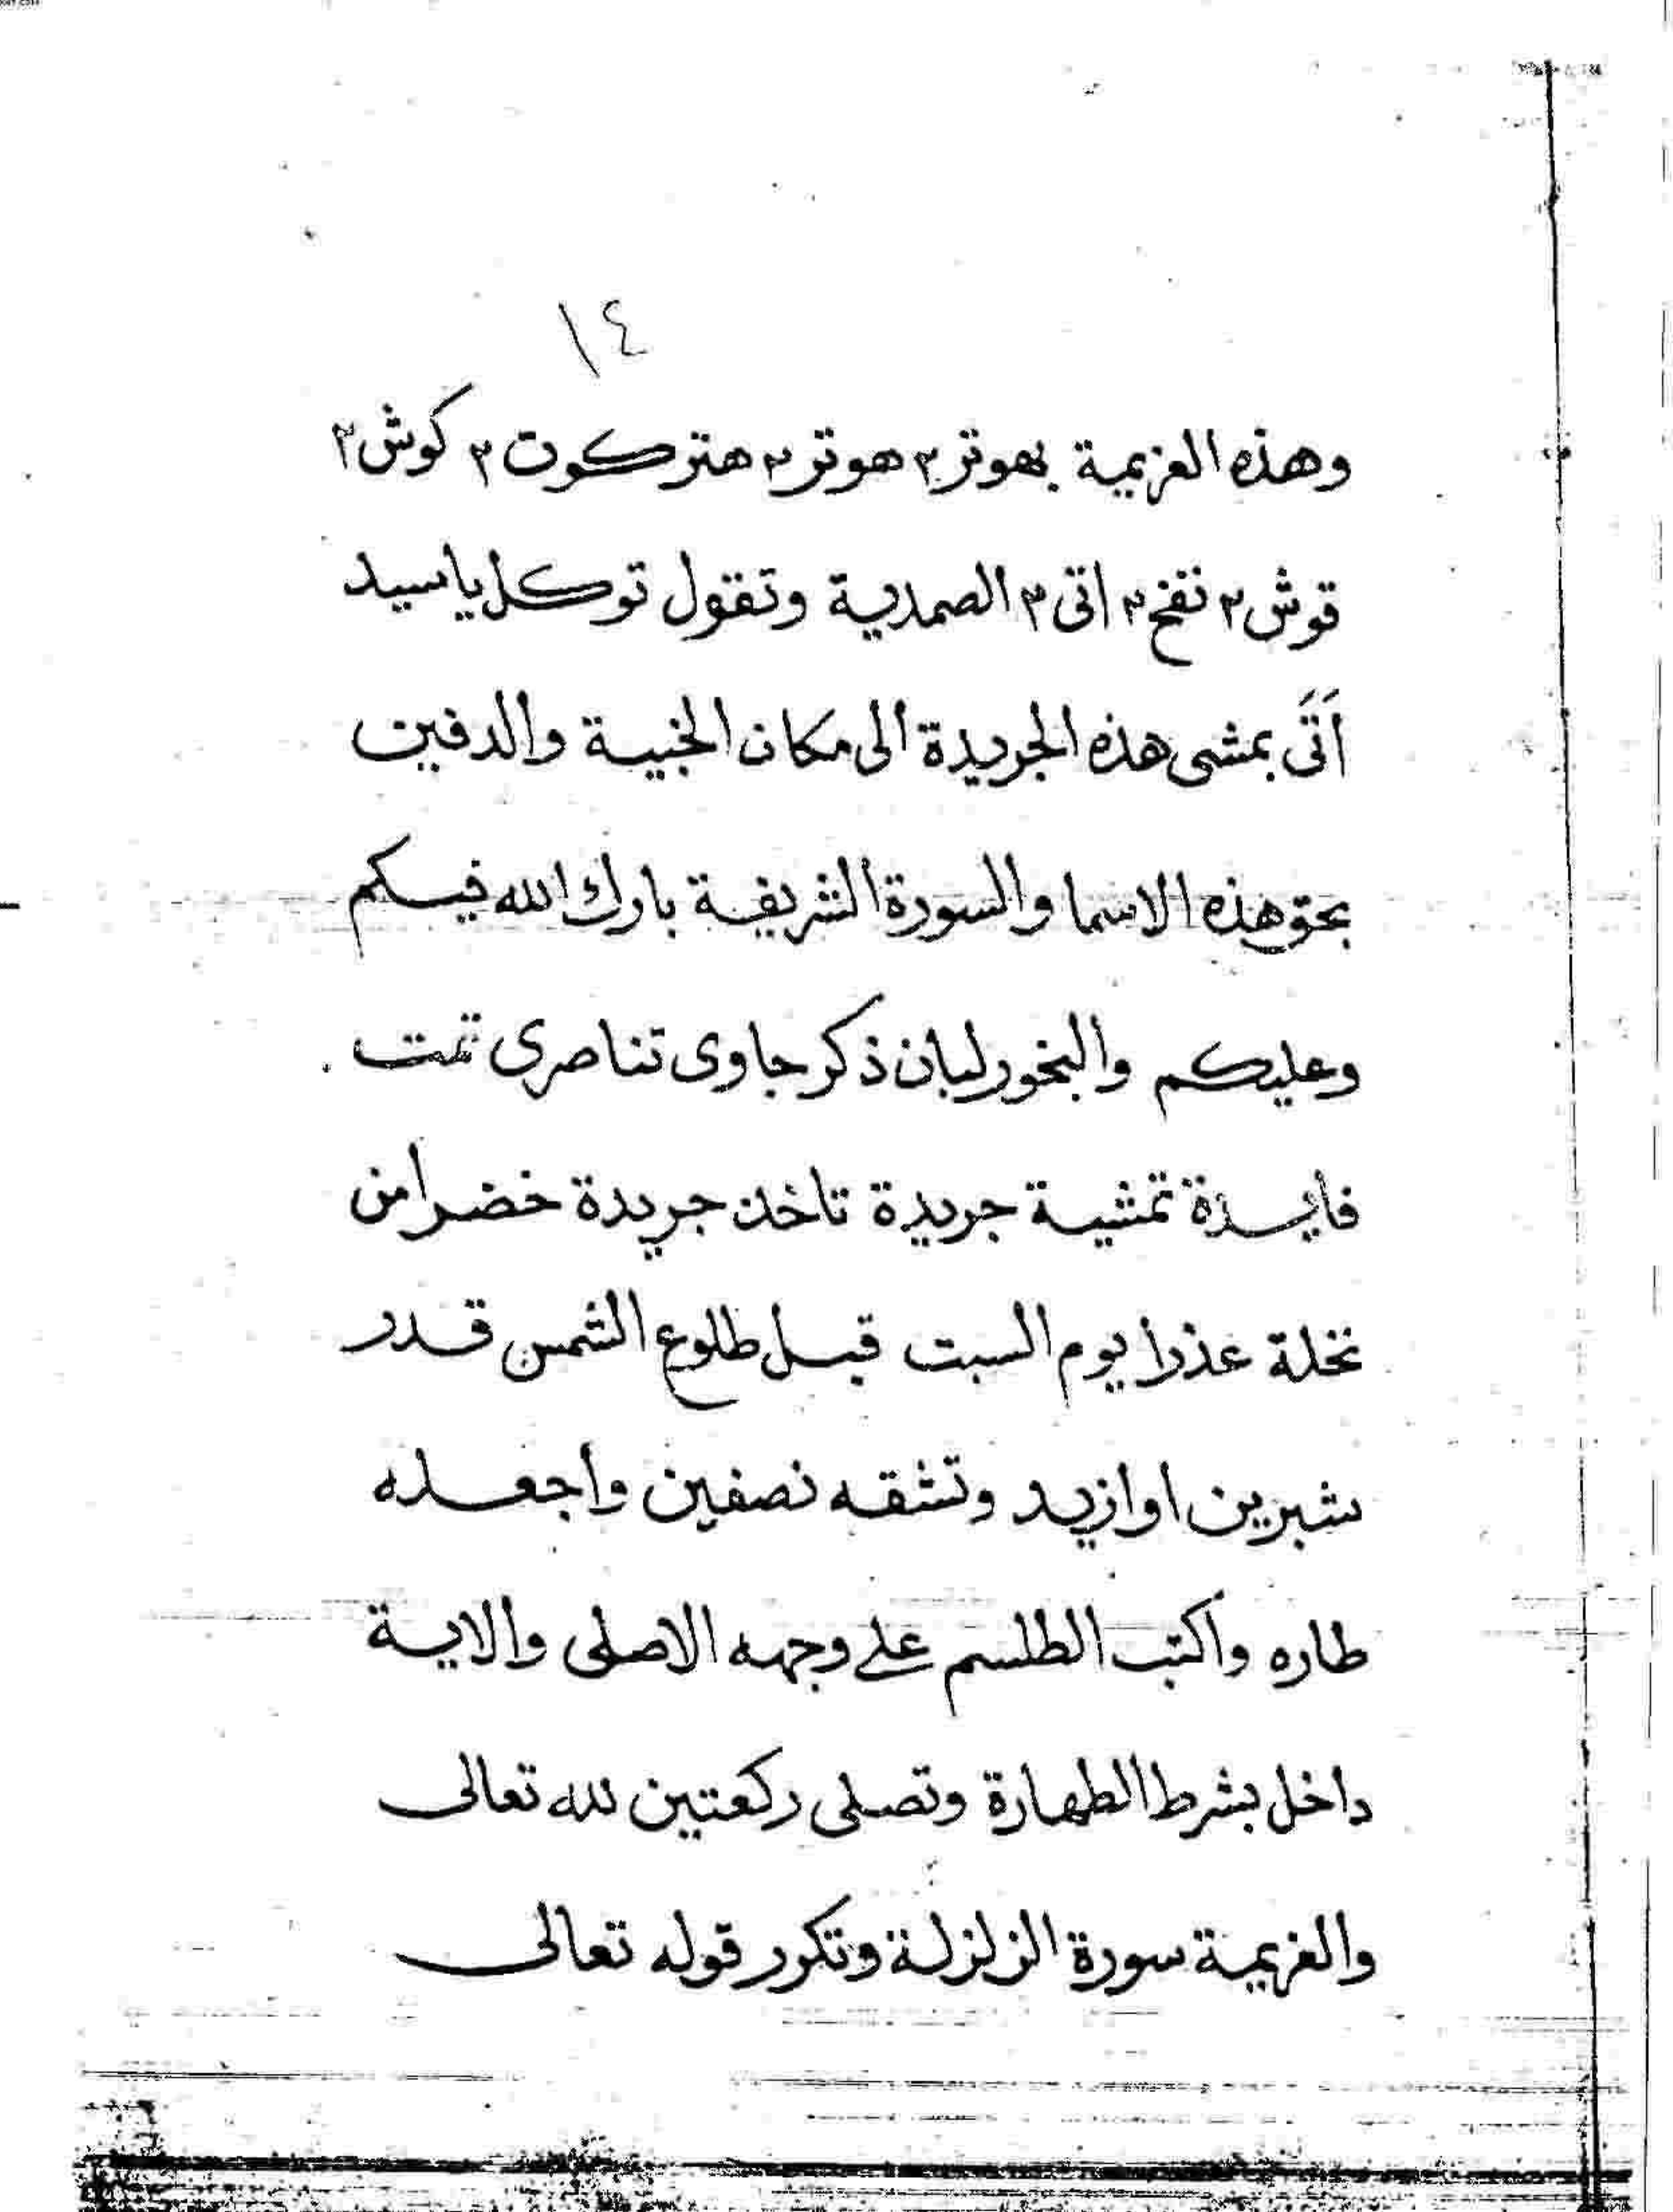 ١٤
وهذه العزيمة بهوتز ٢ هوتز ٢ هتز كوت ٢ كوش ٢
قوش ٢ نقخ ٢ اتى ٢ الصمدية وتقول توكل يا سيد
أَتَى بمشى هذه الجريدة الى مكان الخبية والدفين
بحق هذه الاسما والسورة الشريفة بارك الله فيكم
وعليكم والبخور لبان ذكر جاوى تناصرى تمت .
فايدة تمشية جريدة تاخذ جريدة خضرا من
نخلة عذرا يوم السبت قبل طلوع الشمس قدر
شبرين او ازيد وتشقه نصفين واجعله
طاره واكتب الطلسم على وجهه الاصلى والاية
داخل بشرط الطهارة وتصلى ركعتين لله تعالى
والعزيمة سورة الزلزلة وتكرر قوله تعالى